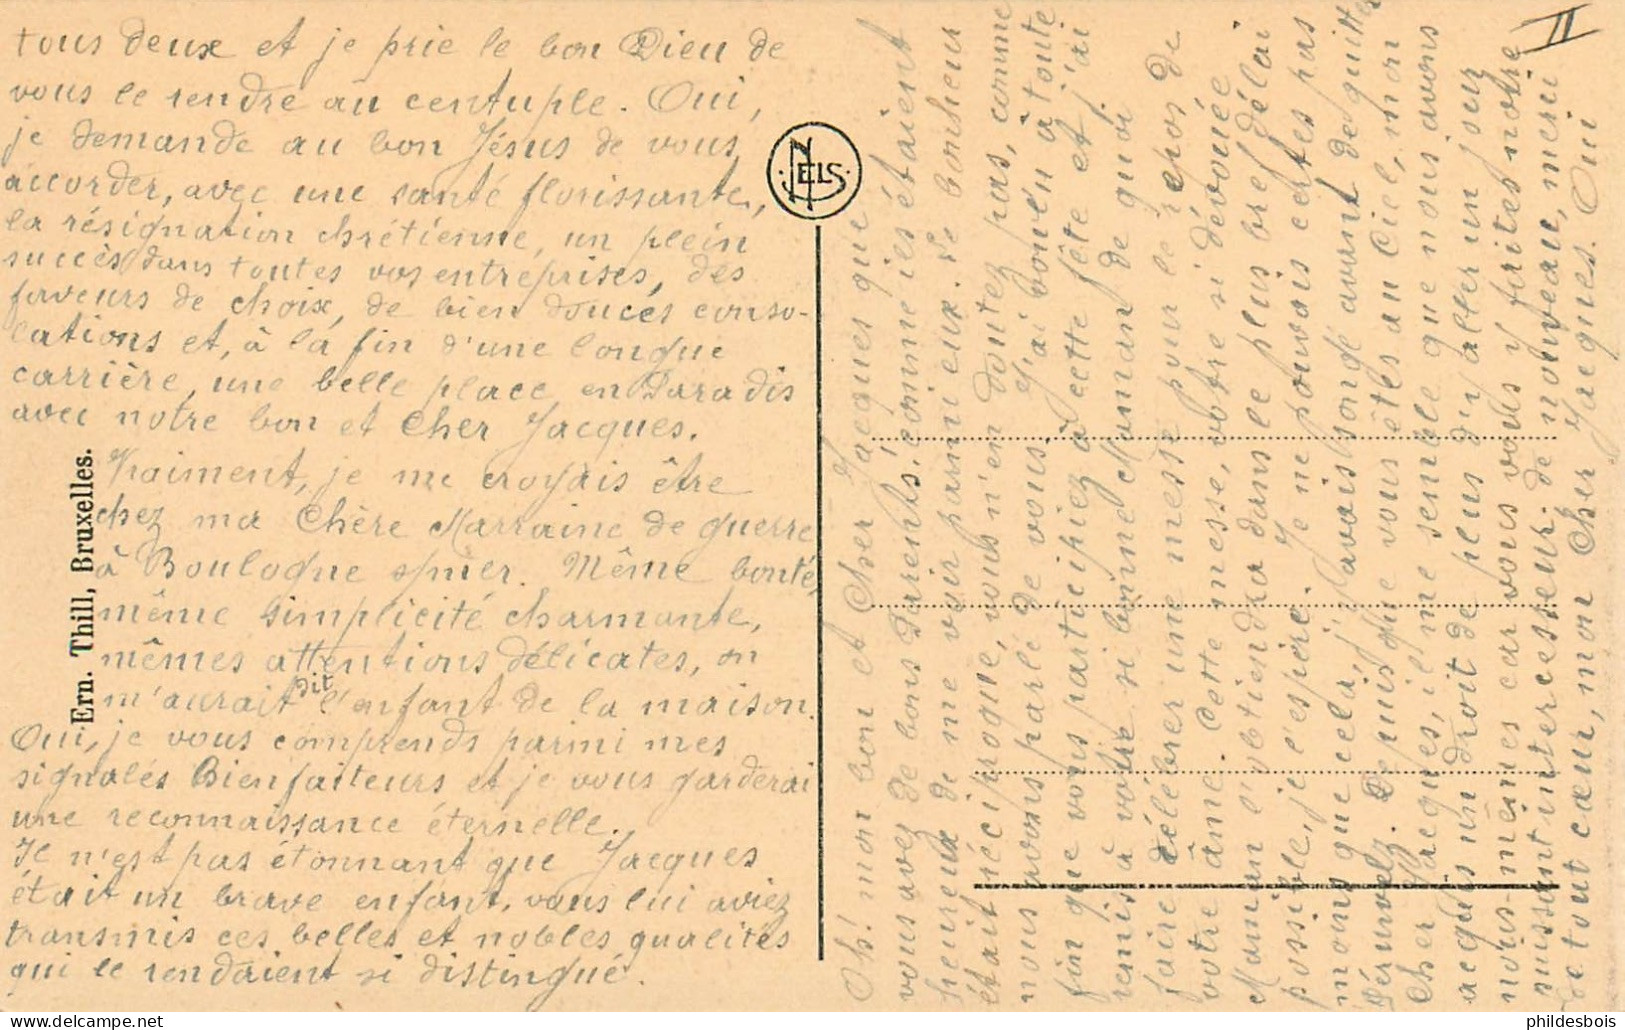 II
tous deux et je prie le bon Dieu de
vous le rendre au centuple. Oui,
je demande au bon Jésus de vous
accorder, avec une santé florissante,
la résignation chrétienne, un plein
succès dans toutes vos entreprises, des
faveurs de choix, de bien douces conso-
lations et, à la fin d'une longue
carrière, une belle place en Paradis
avec notre bon et Cher Jacques.
Vraiment, je me croyais être
chez ma Chère Marraine de guerre
à Boulogne s/mer. Même bonté,
même simplicité charmante,
mêmes attentions délicates, on
m'aurait dit l'enfant de la maison.
Oui, je vous comprends parmi mes
signalés Bienfaiteurs et je vous garderai
une reconnaissance éternelle.
Il n'est pas étonnant que Jacques
était un brave enfant, vous lui aviez
transmis ces belles et nobles qualités
qui le rendaient si distingué.
Ern. Thill, Bruxelles.
NELS
Oh! mon bon et Cher Jacques que
vous avez de bons Parents, comme ils étaient
heureux de me voir parmi eux. Le bonheur
était réciproque, vous n'en doutez pas, comme
nous avons parlé de vous! J'ai convén à toute
fin que vous participiez à cette fête et j'ai
remis à votre si bonne Maman de quoi
faire célébrer une messe pour le repos de
votre âme. Cette messe, votre si dévouée
Maman l'obtiendra dans le plus bref délai
possible, je l'espère. Je ne pouvais certes pas
moins que cela, j'avais songé avant de quitter
. Depuis que vous êtes au Ciel, mon
Cher Jacques, il me semble que nous avons
acquis un droit de plus d'y aller un jour
nous-mêmes car vous vous y faites notre
puissant intercesseur. de nouveau, merci
de tout cœur, mon Cher Jacques. Oui
phildesbois
© www.delcampe.net